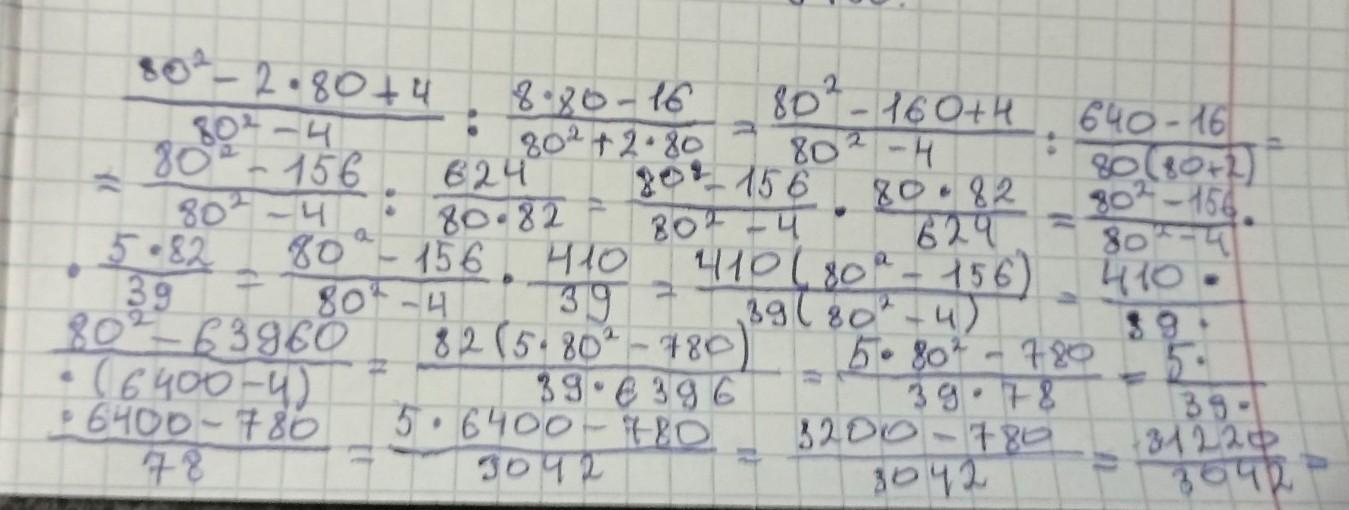 (80² - 2·80+4)/(80² - 4) : (8·80-16)/(80²+2·80) = (80² - 160+4)/(80² - 4) : (640-16)/(80(80+2)) =
= (80² - 156)/(80² - 4) : 624/(80·82) = (80² - 156)/(80² - 4) · (80·82)/624 = (80² - 156)/(80² - 4) ·
· (5·82)/39 = (80² - 156)/(80² - 4) · 410/39 = (410(80² - 156))/(39(80² - 4)) = (410 ·)/(39 ·)
(80² - 63960)/(·(6400-4)) = (82(5·80² - 780))/(39·6396) = (5·80² - 780)/(39·78) = (5·)/(39·)
(·6400-780)/78 = (5·6400-780)/3042 = (3200-780)/3042 = 31220/3042 =